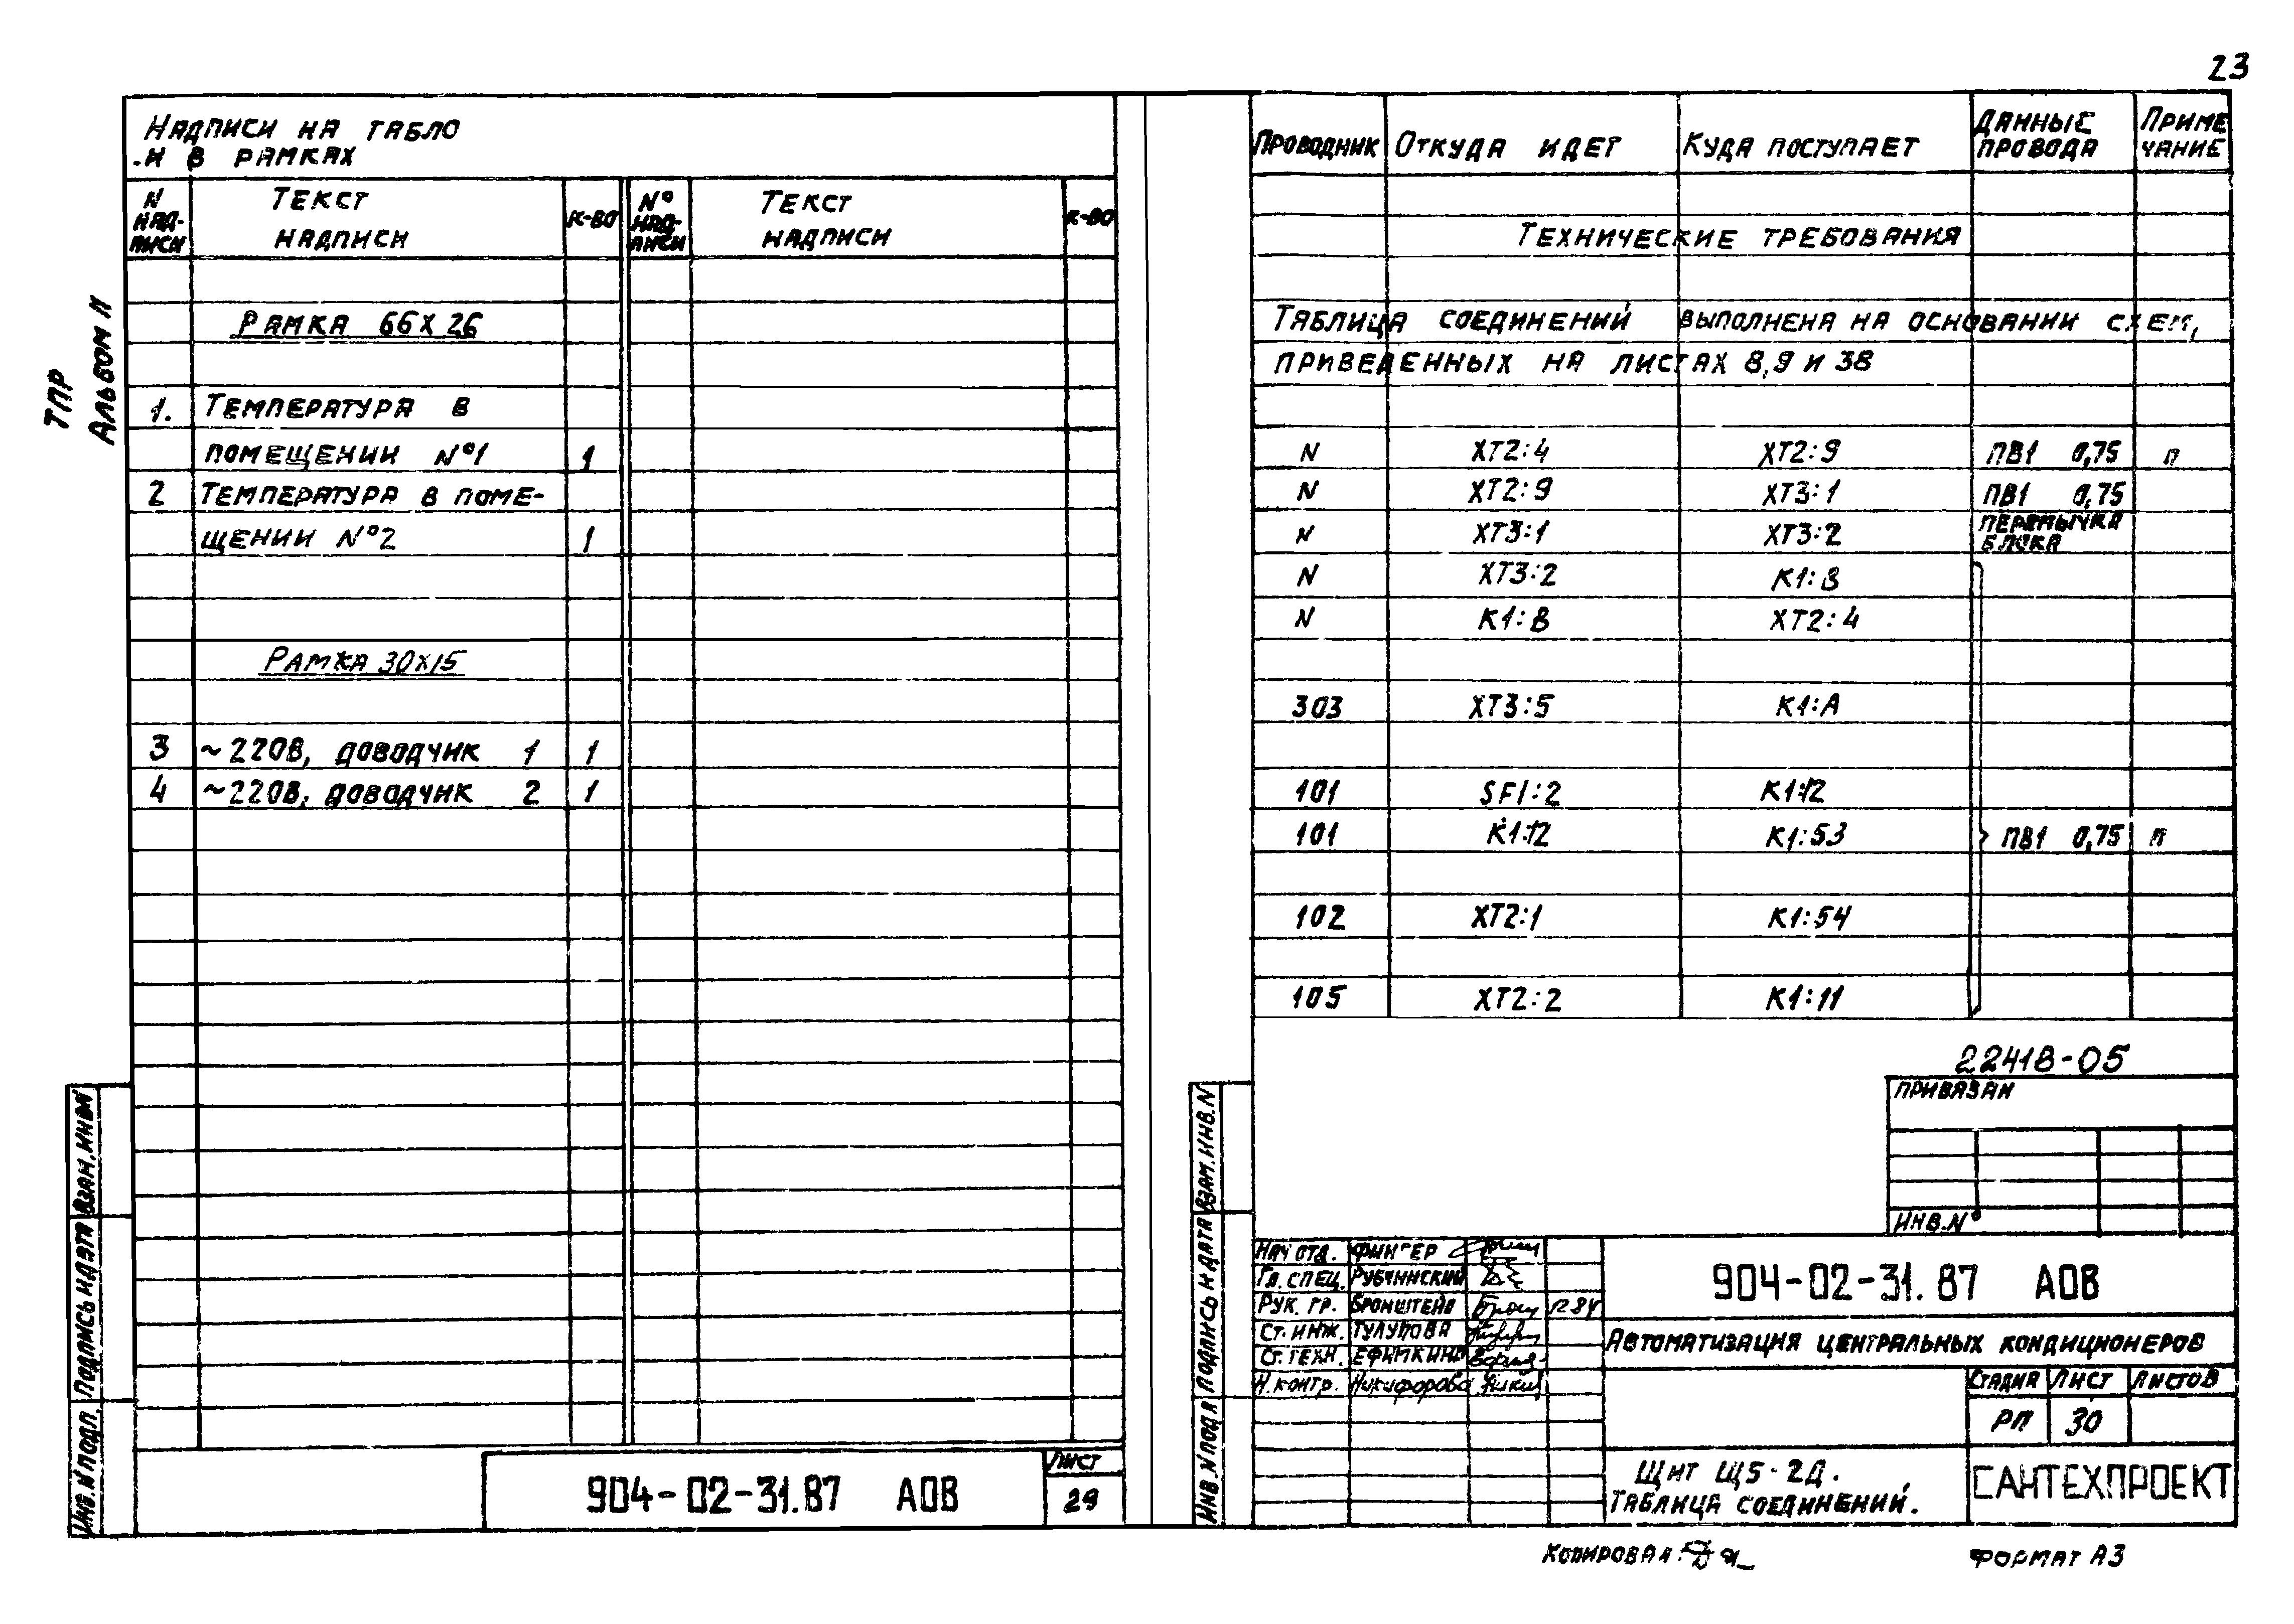 23
ТПР
Альбом II
Надписи на табло
и в рамках
N надписи Текст надписи к-во N° надписи Текст надписи к-во
Рамка 66х26
1. Температура в
помещении N°1 1
2 Температура в поме-
щении N°2 1
Рамка 30х15
3 ~220В, доводчик 1 1
4 ~220В, доводчик 2 1
904-02-31.87 АОВ
Лист
29
Инв.N подл. Подпись и дата Взам.инв.N
Проводник Откуда идет Куда поступает Данные провода Примечание
Технические требования
Таблица соединений выполнена на основании схем,
приведенных на листах 8,9 и 38
N ХТ2:4 ХТ2:9 ПВ1 0,75 п
N ХТ2:9 ХТ3:1 ПВ1 0,75
N ХТ3:1 ХТ3:2 перемычка блока
N ХТ3:2 К1:В
N К1:В ХТ2:4
303 ХТ3:5 К1:А
101 SF1:2 К1:12
101 К1:12 К1:53 ПВ1 0,75 п
102 ХТ2:1 К1:54
105 ХТ2:2 К1:11
22418-05
Привязан
Инв.N°
Инв.N подл Подпись и дата Взам.инв.N
Нач отд. Фингер
Гл. спец. Рубчинский
Рук. гр. Бронштейн
Ст. инж. Тулупова
Ст. техн. Ефимкина
Н. контр. Никифорова
904-02-31.87 АОВ
Автоматизация центральных кондиционеров
Стадия Лист Листов
РП 30
Щит Щ5-2Д.
Таблица соединений.
САНТЕХПРОЕКТ
Копировал:
Формат А3